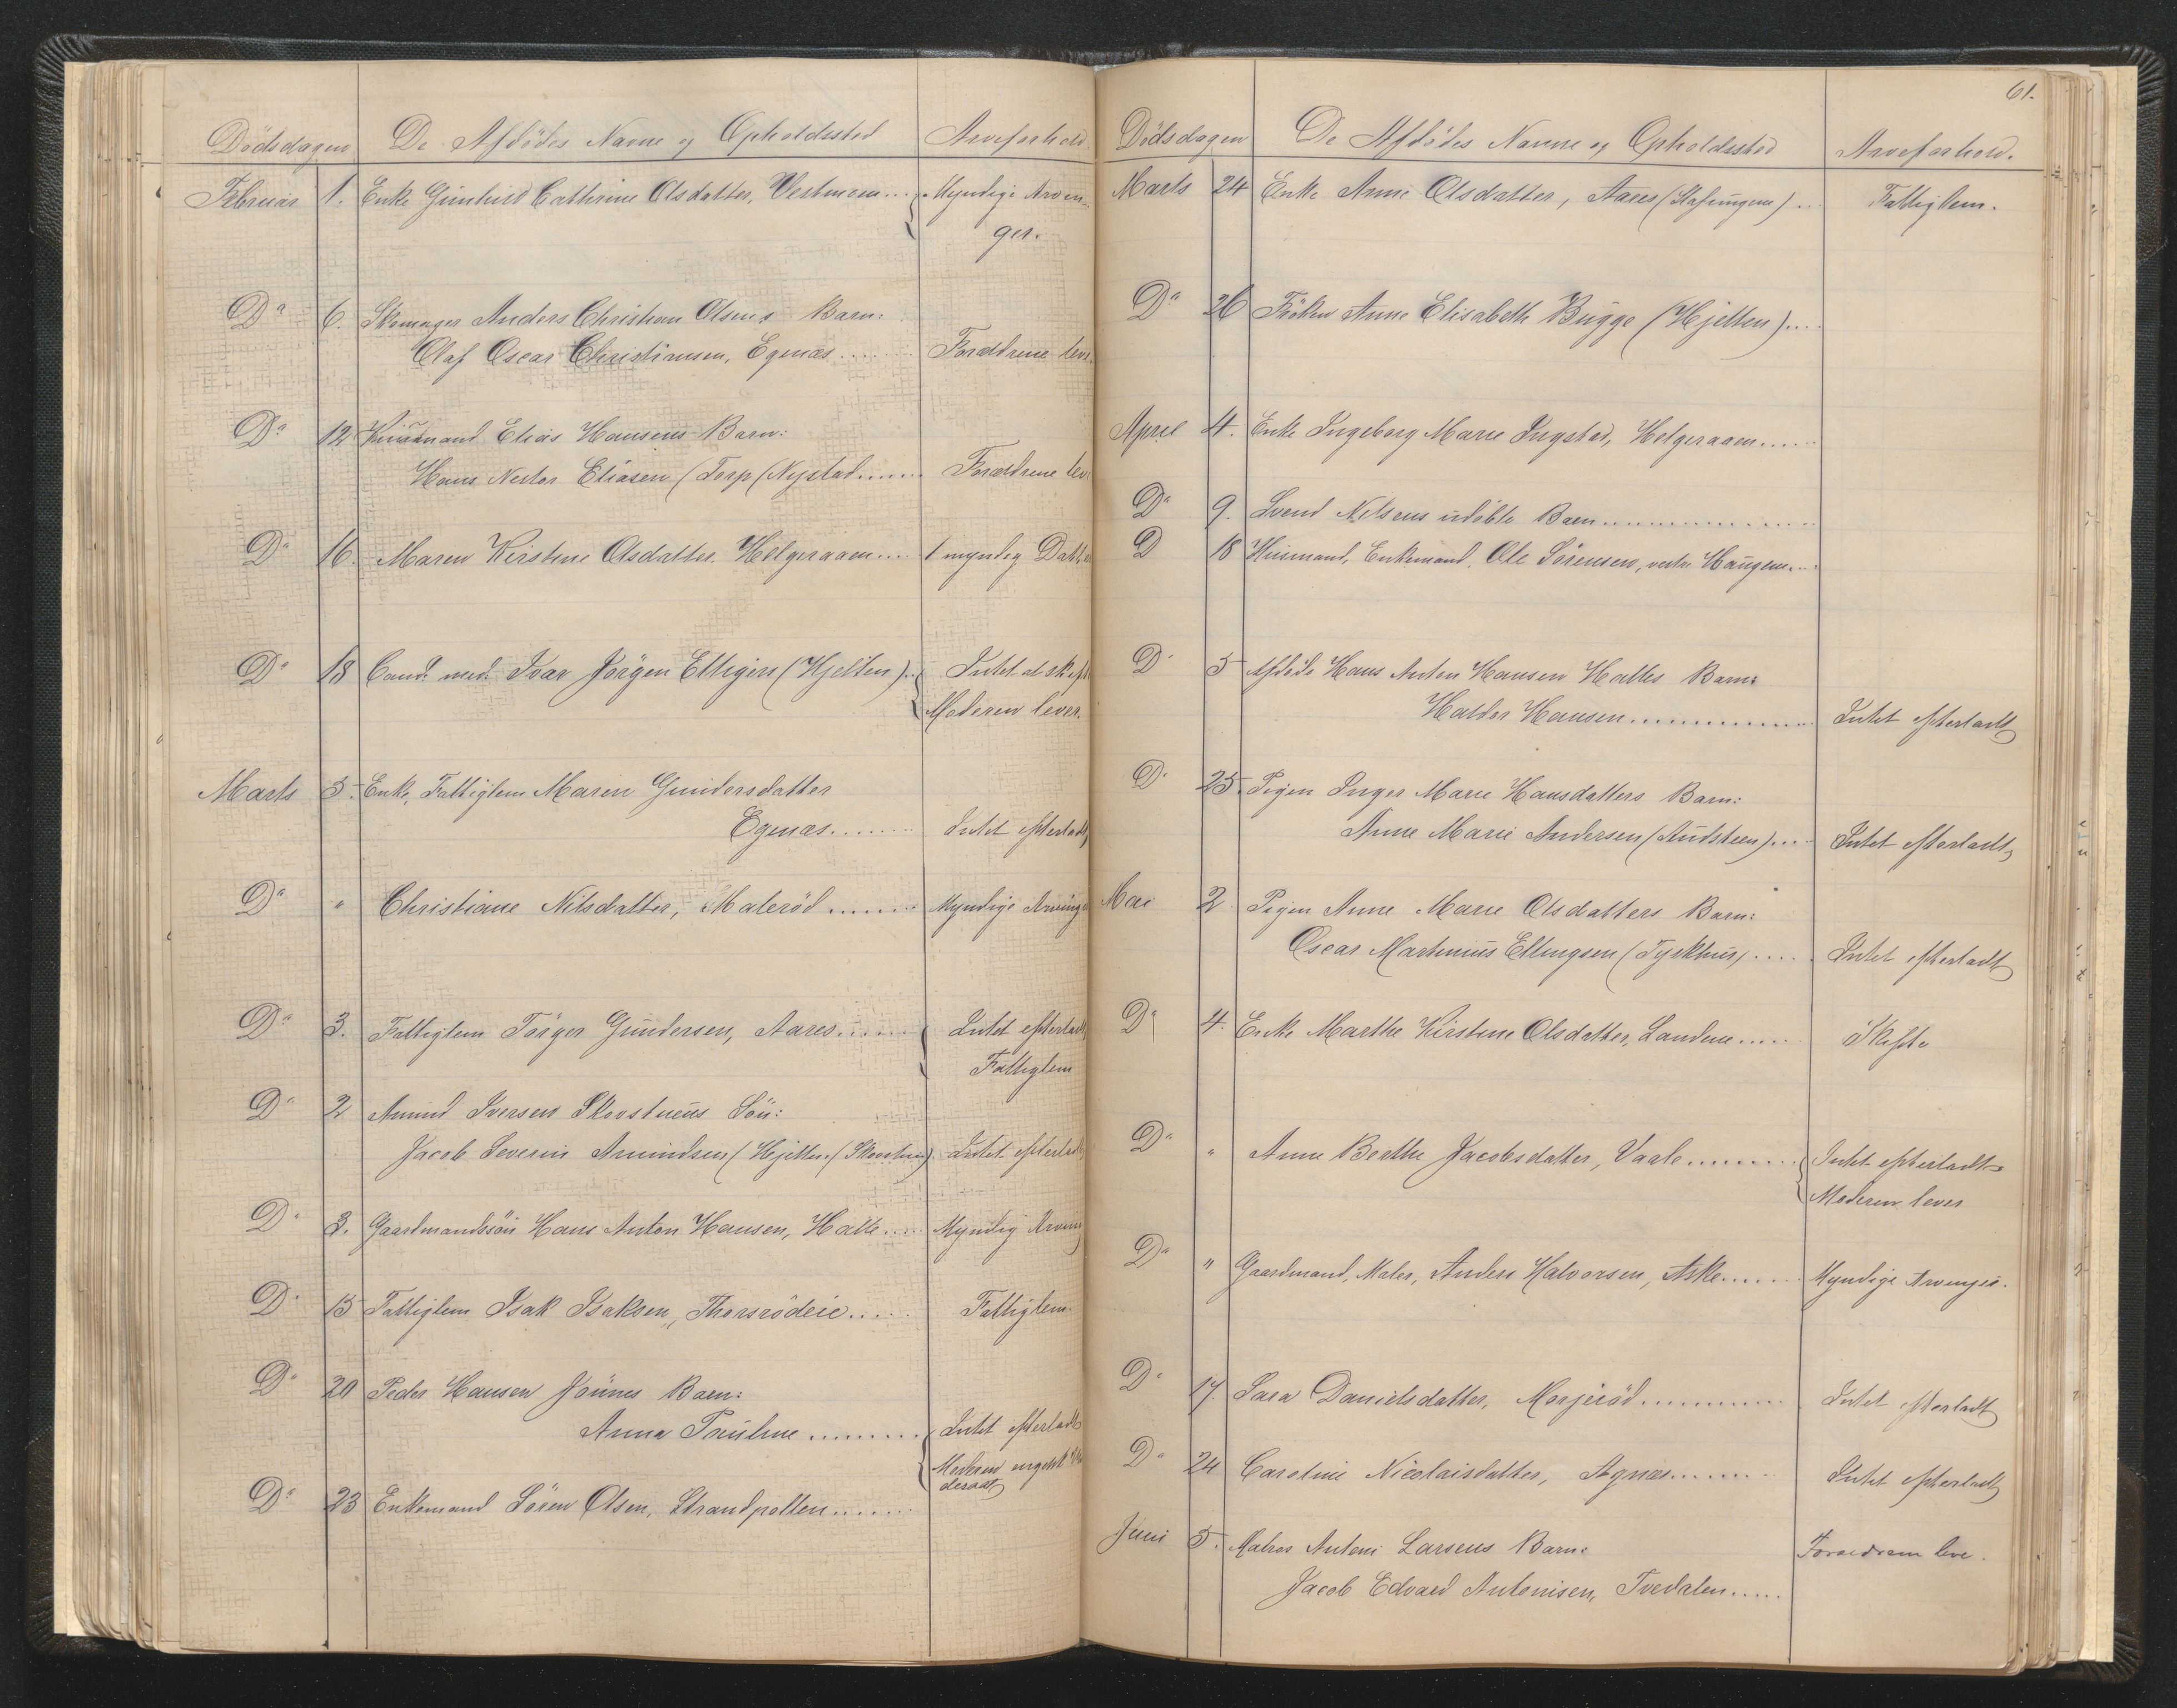 Dödsdagen De Afdödes Navne og Opholdssted Arveforhold
Februar 1. Enke Gunhild Cathrine Olsdatter, Vestmoen.... Myndige Arvin-
ger.
Do 6. Skomager Anders Christian Olsens Barn:
Olaf Oscar Christiansen, Egenæs....... Forældrene leve
Do 12 Husmand Elias Hansens Barn:
Hans Nestor Eliasen (Torp (Nystad...... Forældrene lev
Do 16. Maren Kirstine Olsdatter. Helgeraaen.... 1 myndig Datter
Do 18 Cand. med. Ivar Jörgen Ellegers (Hjelten).. Intet at skifte
Moderen lever.
Marts 5. Enke, Fattiglem Maren Gundersdatter
Egenæs....... Intet efterladt
Do " Christiane Nilsdatter, Maleröd....... Myndige Arvinge
Do 3. Fattiglem Torger Gundersen, Aares...... Intet efterladt
Fattiglem
Do 2 Amund Iversen Skovstuens Sön:
Jacob Severin Amundsen (Hjelten (Skovstuen) Intet efterladt
Do 3. Gaardmandssön Hans Anton Hansen, Halle.... Myndig Arving
Do 13 Fattiglem Isak Isaksen, Thorsrödeie..... Fattiglem.
Do 20 Peder Hansen Barn:
Anna Pauline ......... Intet efterladt
Moderen
Do 23 Enkemand Sören Olsen, Strandpotten.......
61.
Dödsdagen De Afdödes Navne og Opholdssted Arveforhold.
Marts 24 Enke Anne Olsdatter, Aares ... Fattiglem.
Do 26 Fröken Anne Elisabeth Bugge (Hjelten)....
April 4. Enke Ingeborg Marie Ingstad, Helgeraaen.....
Do 9. Svend Nilsens udöbte Barn...............
D 18 Husmand, Enkemand, Ole Sörensen, vestre Haugen....
Do 5 Afdöde Hans Anton Hansen Halles Barn:
Haldor Hansen............... Intet efterladt
Do 25. Pigen Inger Marie Hansdatters Barn:
Anne Marie Andersen (Audsteen).... Intet efterladt
Mai 2 Pigen Anne Marie Olsdatters Barn:
Oscar Martinius Ellingsen (Tyskhus)..... Intet efterladt
Do 4. Enke Marthe Kirstine Olsdatter, Landene..... Skifte
Do " Anne Berthe Jacobsdatter, Vaale......... Intet efterladt
Moderen lever
Do " Gaardmand, Maler, Anders Halvorsen, Aske...... Myndige Arvinger.
Do 17. Sara Danielsdatter, Morjeröd............ Intet efterladt
Do 24 Caroline Nicolaisdatter, Agnæs........ Intet efterladt
Juni 5. Matros Antoni Larsens Barn: Forældrene leve.
Jacob Edvard Antonisen, Tvedalen.....